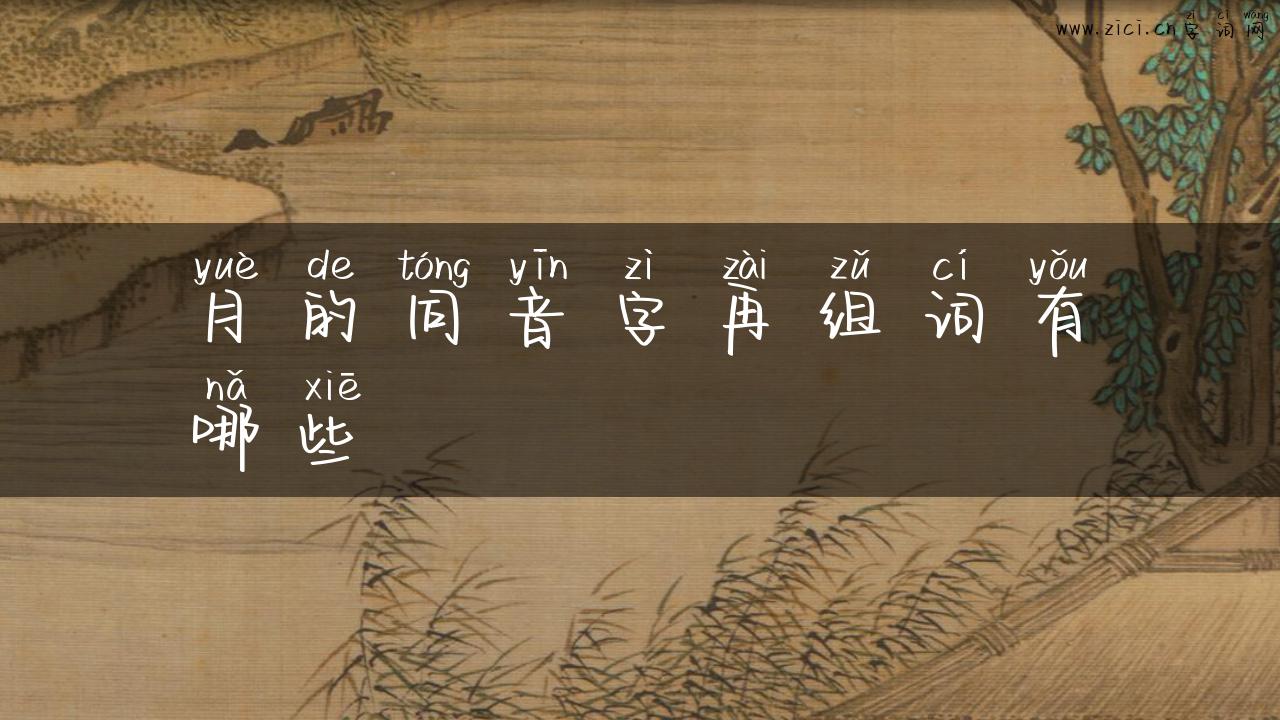 zì cí wǎng
www.zici.cn字词网
yuè de tóng yīn zì zài zǔ cí yǒu
月的同音字再组词有
nǎ xiē
哪些